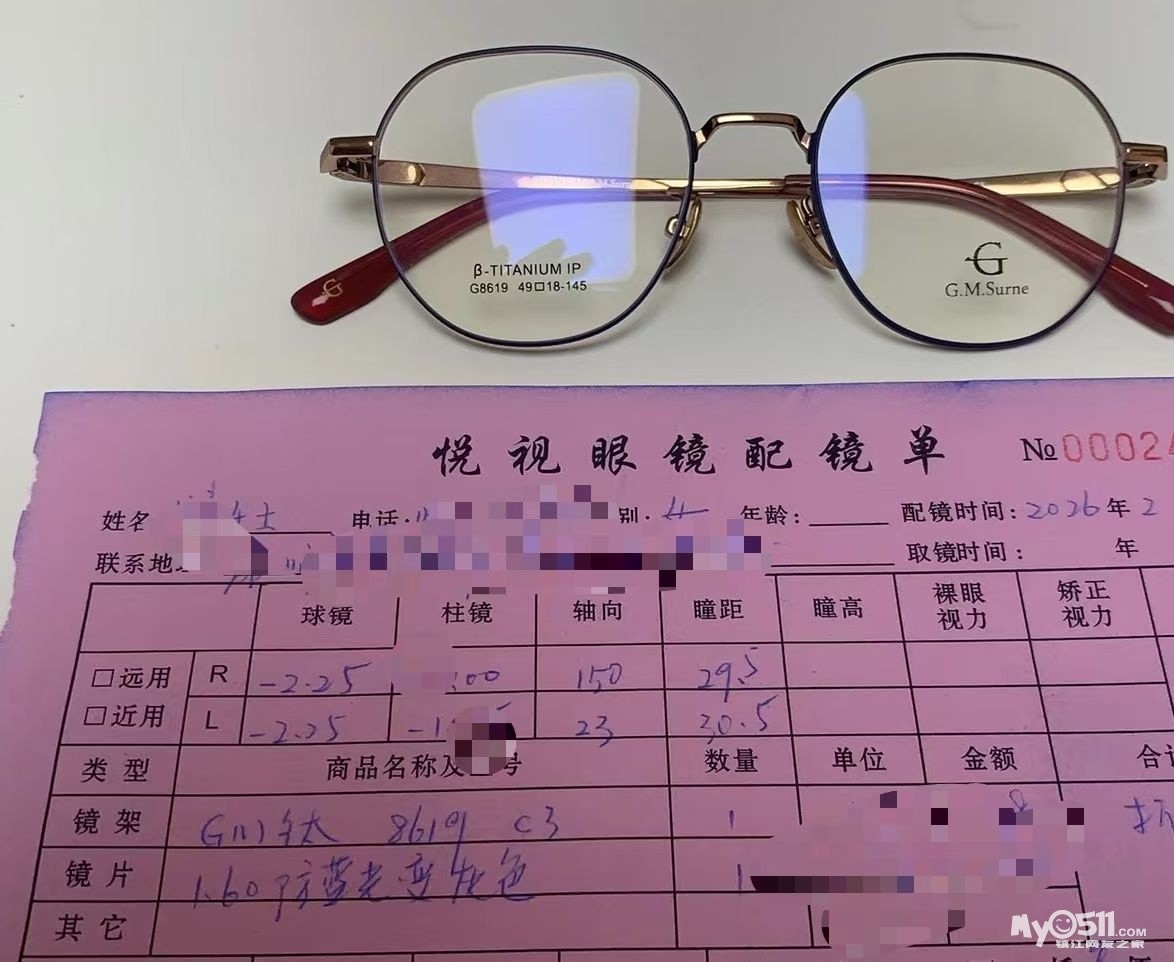 β-TITANIUM IP
G8619 49□18-145
G
G.M.Surne
悦视眼镜配镜单 №00024
姓名 女士 电话: 别: 女 年龄: 配镜时间: 2026年2
联系地 取镜时间: 年
球镜 柱镜 轴向 瞳距 瞳高 裸眼视力 矫正视力
□远用 R -2.25 .00 150 29.5
□近用 L -2.25 -1. 23 30.5
类型 商品名称及 号 数量 单位 金额 合计
镜架 GM钛 8619 C3 1
镜片 1.60防蓝光变灰色 1
其它
My0511.COM
镇江网友之家